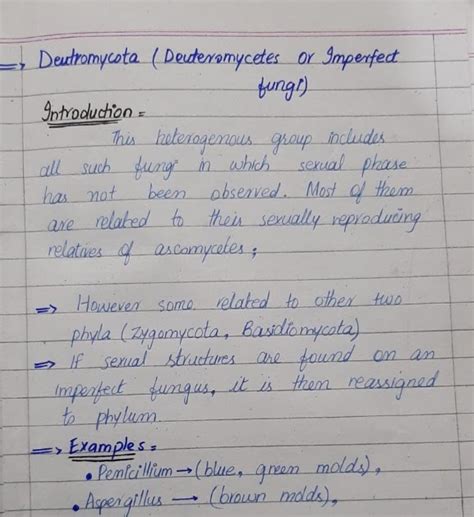 ⇒ Deutromycota (Deuteromycetes or Imperfect
fungi)
Introduction =
This heterogenous group includes
all such fungi in which sexual phase
has not been observed. Most of them
are related to their sexually reproducing
relatives of ascomycetes;
⇒ However some related to other two
phyla (Zygomycota, Basidiomycota)
⇒ If sexual structures are found on an
imperfect fungus, it is then reassigned
to phylum
⇒ Examples =
• Penicillium → (blue, green molds),
• Aspergillus → (brown molds),